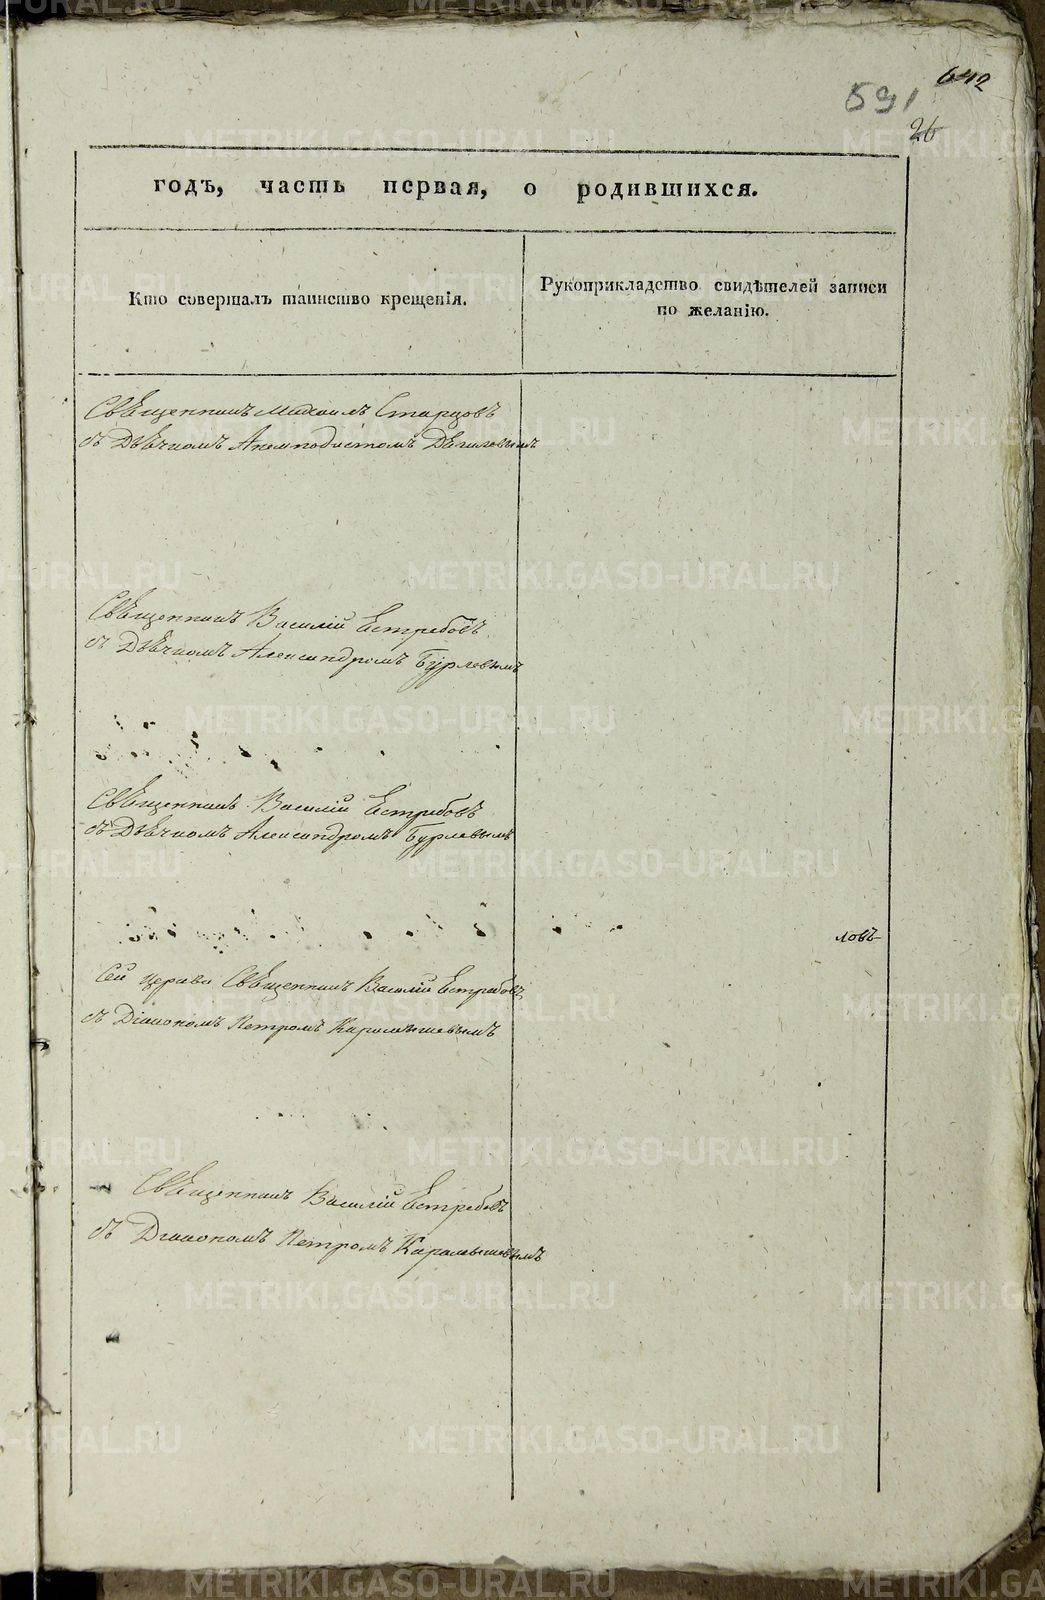 642
591
26
годъ, часть первая, о родившихся.
Кто совершалъ таинство крещенія.
Рукоприкладство свидѣтелей записи
по желанію.
Священникъ Михаилъ Старцовъ
съ Дьячкомъ Анемподистомъ
Священникъ Василій Естребовъ
съ Дьячкомъ Александромъ Бурлевымъ
Священникъ Василій Естребовъ
съ Дьячкомъ Александромъ Бурлевымъ
ловъ
Сей церкви Священникъ Василій Естребовъ
съ Діакономъ Петромъ Карамышевымъ
Священникъ Василій Естребовъ
съ Діакономъ Петромъ Карамышевымъ
METRIKI.GASO-URAL.RU